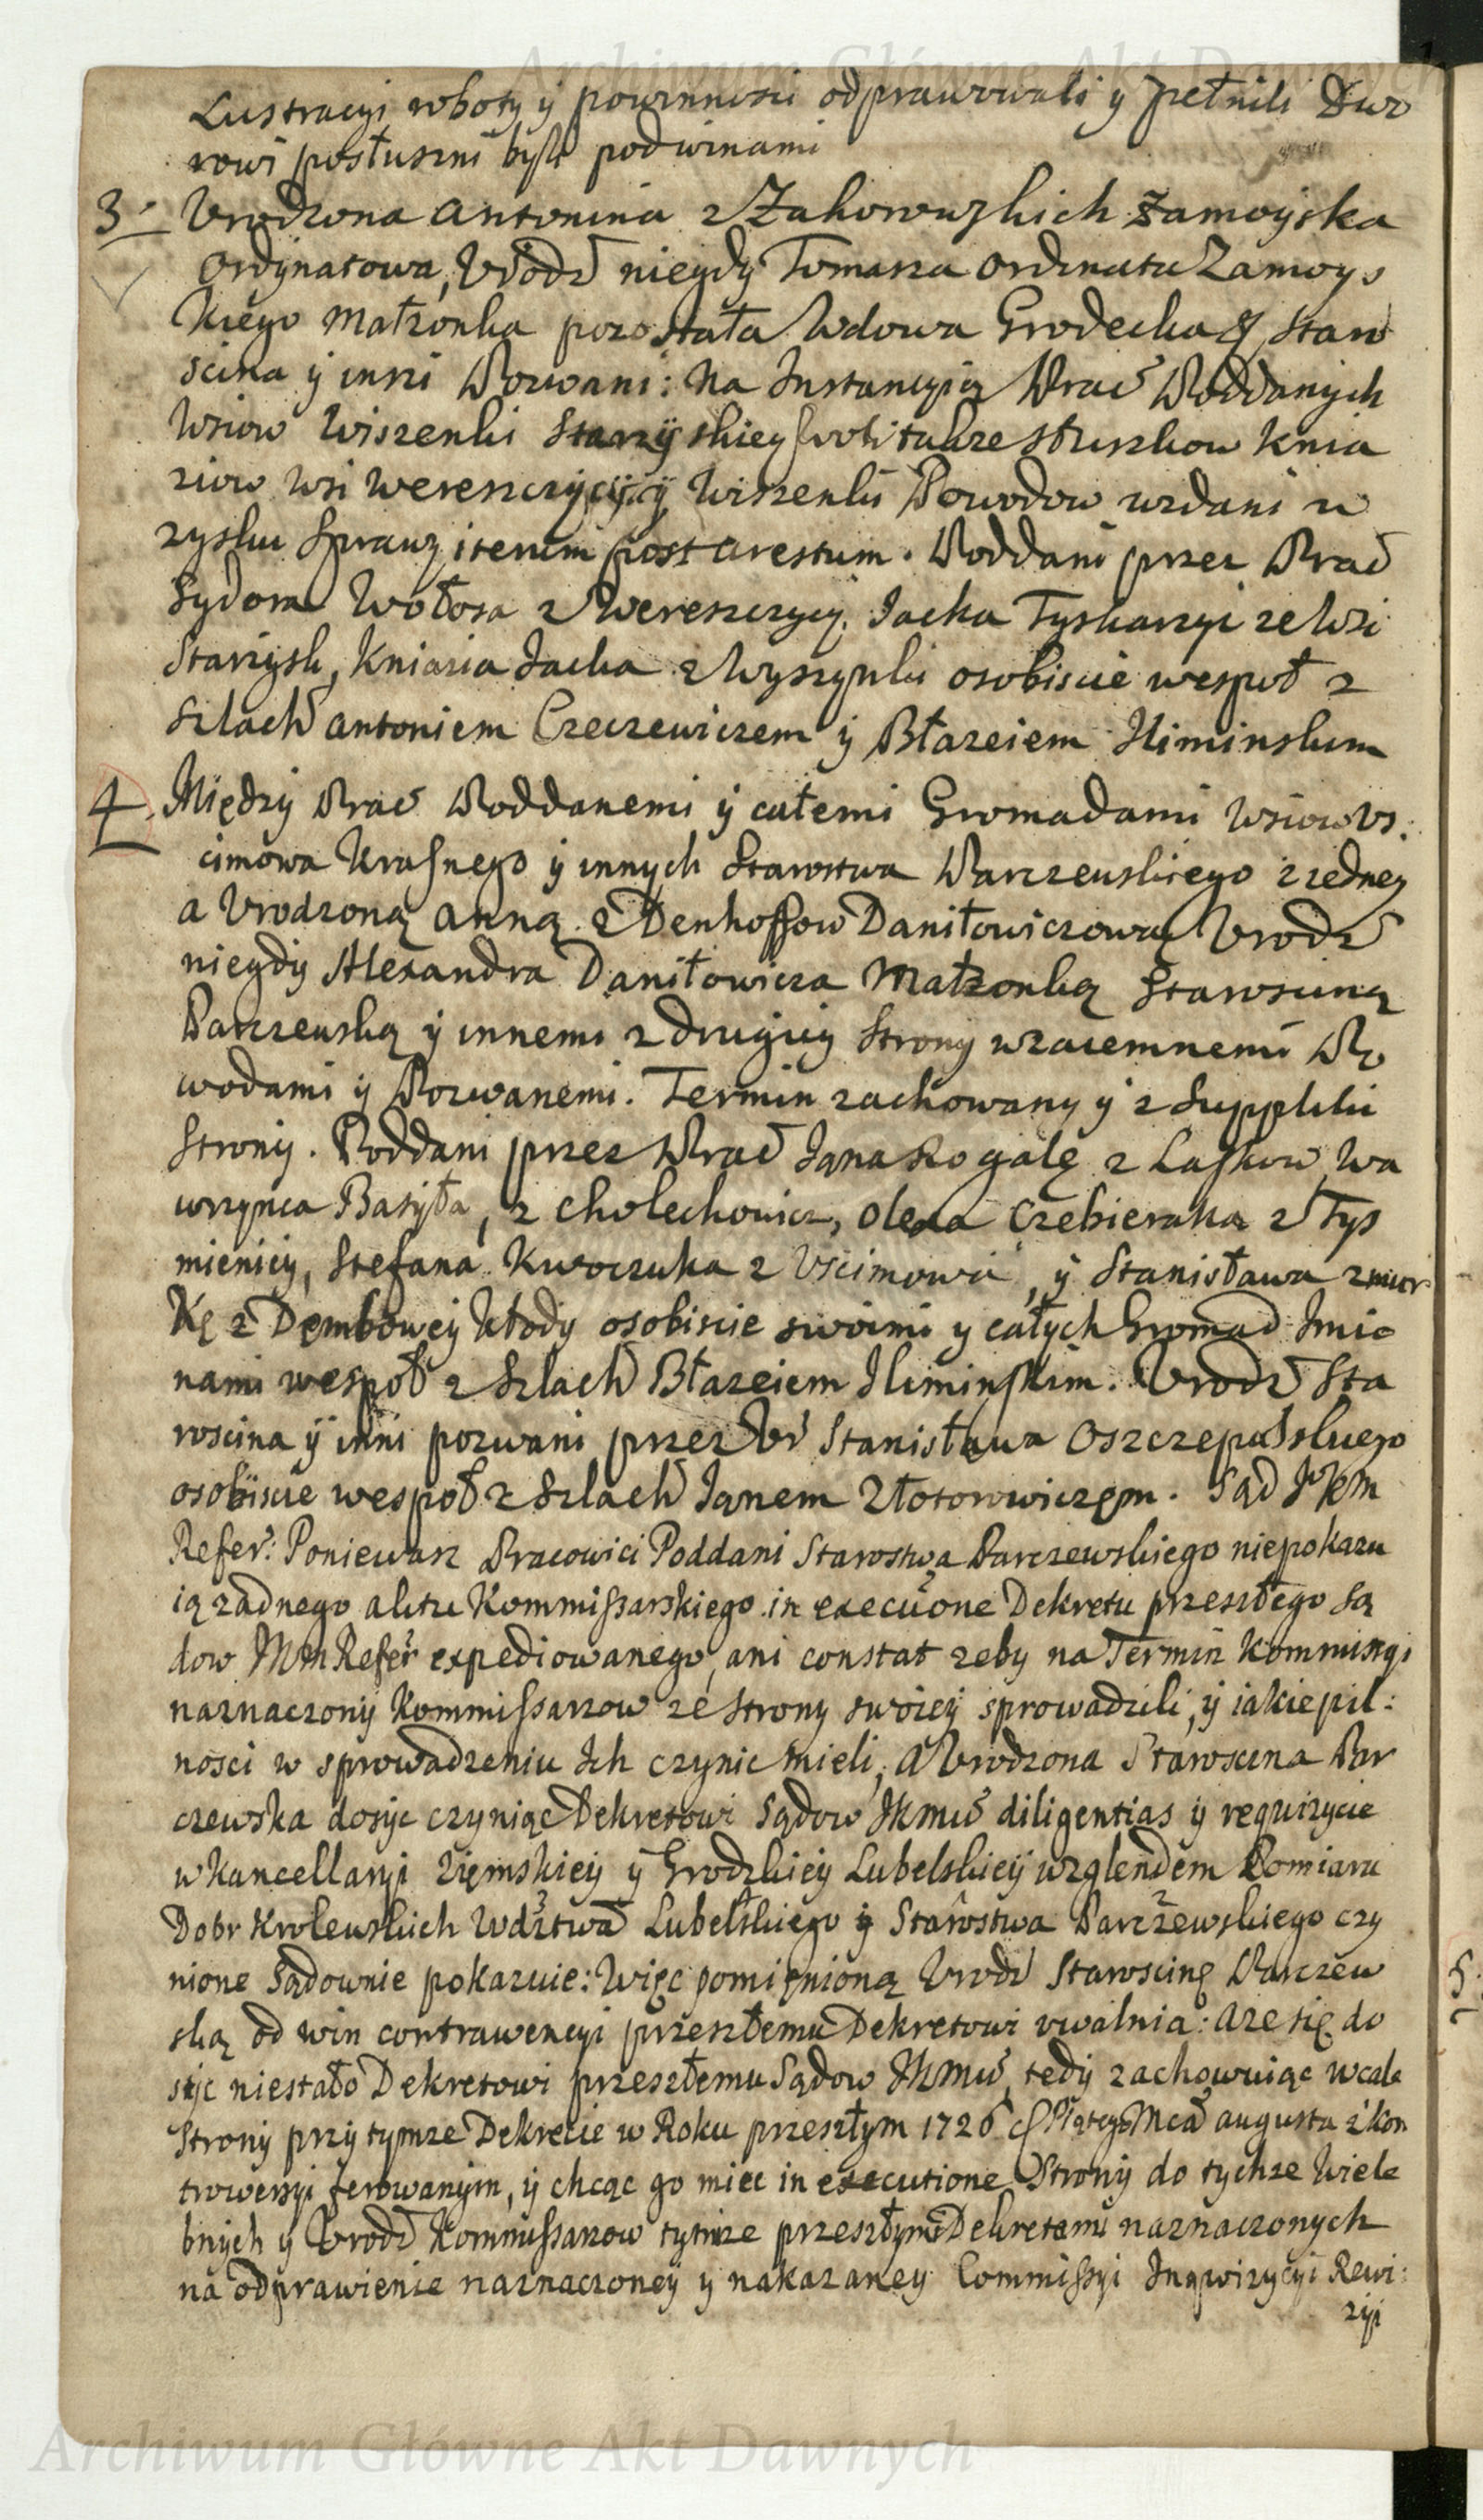 Archiwum Główne Akt Dawnych
Lustracyi roboty y powinnosci odprawowali y pełnili Dwo
rowi posłuszni byli pod winami
3. Urodzona Antonina z Zahorowskich Zamoyska
Ordynatowa, Urodz niegdy Tomasza Ordinata Zamoys
kiego Małzonka pozostała Wdowa Grodecka Staro
scina y inszi Pozwani: Na Instancyią Prac Poddanych
Wsiow Wiszenki Starzyskiey Woli także Służkow Knia
ziow Wsi Wereszczycy y Wiszenki Powodow wzdani w
zysku Sprawy iterum post arestum. Poddani przez Prac
Sydora Wołosa z Wereszczycy, Jacka Tyskarzyi ze Wsi
Starzysk, Kniazia Jacka z Wyszynki osobiscie wespoł z
Szlach Antoniem Czeczewiczem y Błazeiem Iliminskim
4. Między Prac Poddanemi y całemi Gromadami Wsiow Us:
cimowa Krasnego y innych Starostwa Parczewskiego z iedney
a Urodzoną Anną z Denhoffow Daniłowiczową Urodz
niegdy Alexandra Daniłowicza Małzonką Starosciną
Parczewską y innemi z drugiey Strony wzaiemnemi Po
wodami y Pozwanemi. Termin zachowany y z Suppliki
Strony. Poddani przez Prac Jana Rogalę z Laskow, Wa
wrzynca Basyła, z Cholechowicz, Olexa Czebieraka z Tys
mienicy, Stefana Kwoczuka z Uscimowa, y Stanisława zmur
Kę z Dembowey Kłody osobiscie swoimi y całych Gromad Imie
nami wespoł z Szlach Błazeiem Iliminskim. Urodz Sta
roscina y inni pozwani przez Ur Stanisława Oszczepalskiego
osobiscie wespoł z Szlach Janem Złotorowiczem. Sąd JKM
Refer: Poniewasz Pracowici Poddani Starostwa Parczewskiego niepokazu
ią zadnego aktu Kommissarskiego in executione Dekretu przeszłego Są
dow JKM Refer expediowanego, ani constat zeby na Termin Kommissyi
naznaczony Kommissarzow ze strony swoiey sprowadzili, y iakie pil:
nosci w sprowadzeniu Ich czynic mieli, A Urodzona Staroscina Par
czewska dosyc czyniąc Dekretowi Sądow JKMci diligentias y requizycie
w Kancellaryi Ziemskiey y Grodzkiey Lubelskiey wzglendem Pomiaru
Dobr Krolewskich Wdztwa Lubelskiego y Starostwa Parczewskiego czy
nione Sądownie pokazuie: Więc pomienioną Urodz Staroscinę Parczew
ską od win contrawencyi przeszłemu Dekretowi uwalnia: A ze się do
syc niestało Dekretowi przeszłemu Sądow JKMci, tedy zachowuiąc wcale
Strony przy tymze Dekrecie w Roku przeszłym 1726 d Piątego Mca Augusta z kon
trowersyi ferowanym, y chcąc go miec in executione Strony do tychze Wiele
bnych y Urodz Kommissarzow tymze przeszłym Dekretem naznaczonych
na odprawienie naznaczoney y nakazaney Commissyi Inqwizycyi Rewi:
zyi
Archiwum Główne Akt Dawnych